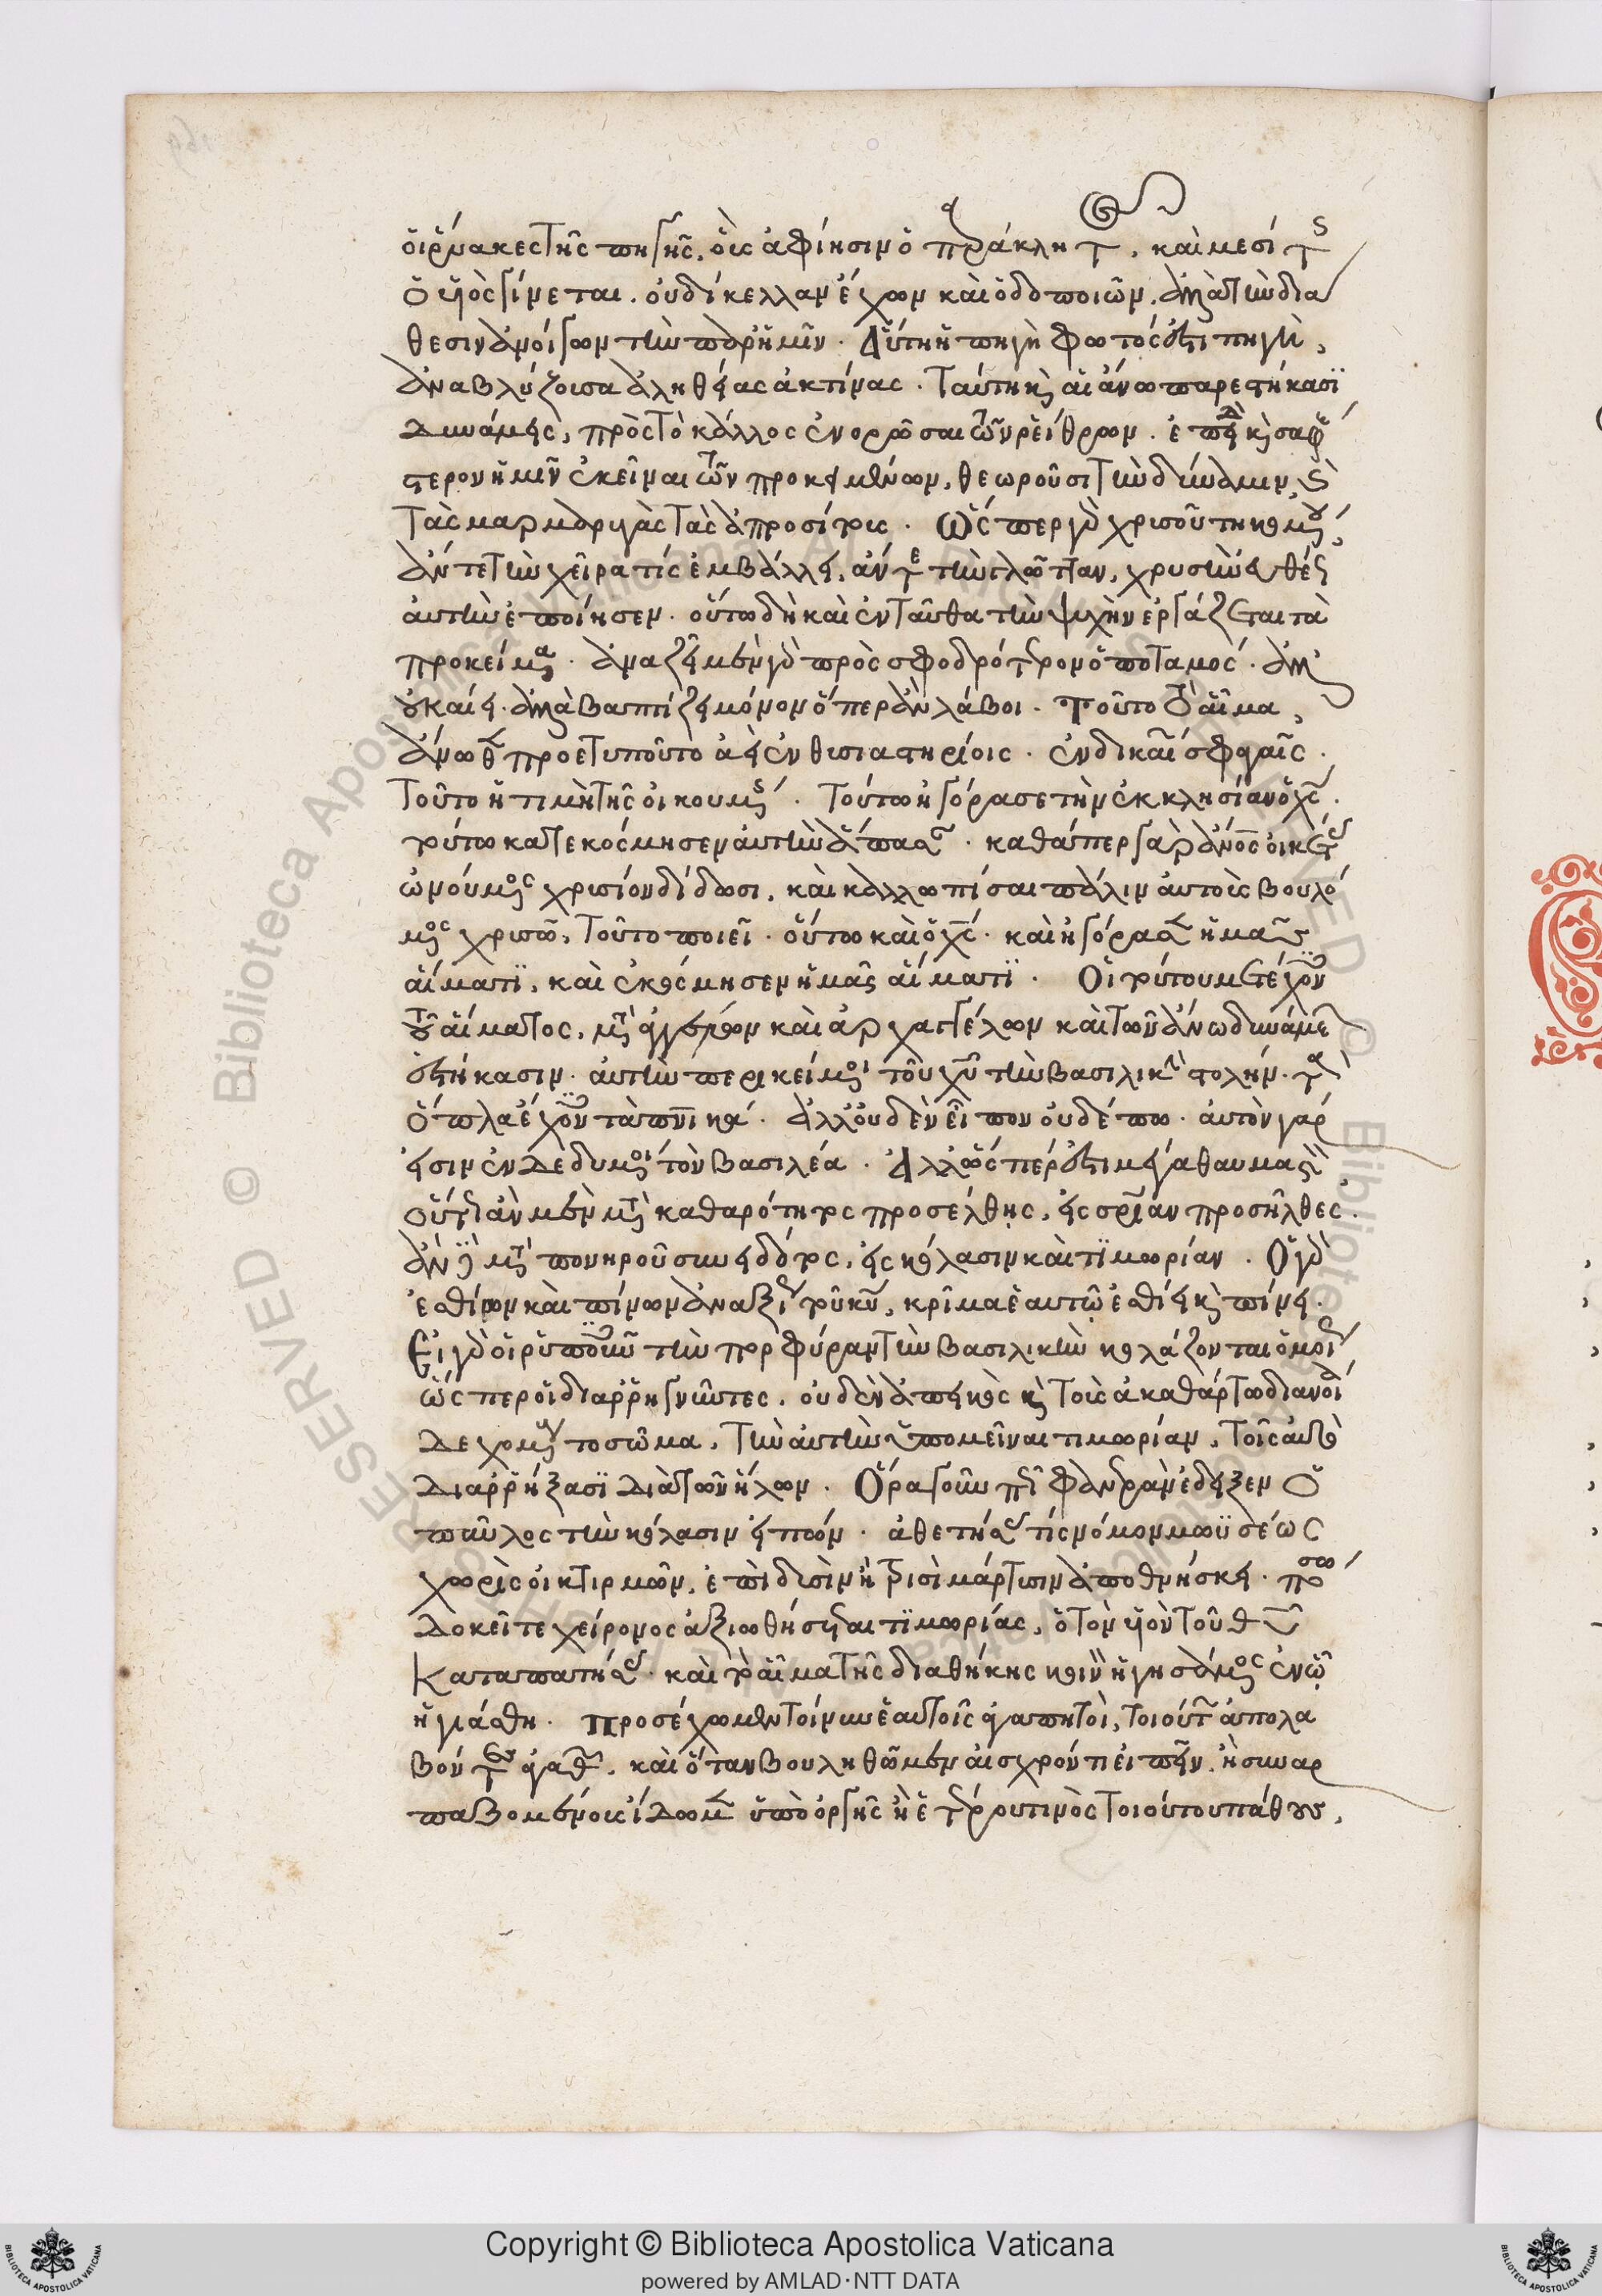 οἱ ῥύακες τῆς πηγῆς, οὓς ἀφίησιν ὁ παράκλητος. καὶ μεσίτης
ὁ υἱὸς γίνεται. οὐ δίκελλαν ἔχων καὶ ὁδοποιῶν. ἀλλὰ τὴν διά
θεσιν ἀνοίγων τὴν παρ' ἡμῖν. Αὕτη ἡ πηγὴ φωτός ἐστι πηγὴ,
ἀναβλύζουσα ἀληθείας ἀκτίνας. Ταύτη καὶ αἱ ἄνω παρεστήκασϊ
δυνάμεις, πρὸς τὸ κάλλος ἐνορῶσαι τῶν ῥείθρων. ἐπειδὴ καὶ σαφέ
στερον ἡμῶν ἐκεῖναι τῶν προκειμένων, θεωροῦσι τὴν δύναμιν, καὶ
τὰς μαρμαρυγὰς τὰς ἀπροσίτους. Ὥσπερ γὰρ χρυσοῦ τηκομένου,
ἄν τε τὴν χεῖρα τίς ἐμβάλλει, ἄν τε τὴν γλῶτταν, χρυσὴν εὐθέως
αὐτὴν ἐποίησεν. οὕτω δὴ καὶ ἐνταῦθα τὴν ψυχὴν ἐργάζεται τὰ
προκείμενα. ἀναζεῖ μὲν γὰρ πυρὸς σφοδρότερον ὁ ποταμός. ἀλλ'
οὐ καίει. ἀλλὰ βαπτίζει μόνον ὅπερ ἂν λάβοι. Τοῦτο τὸ αἷμα,
ἄνωθεν προετυποῦτο ἀεὶ ἐν θυσιαστηρίοις. ἐν δικαίων σφαγαῖς.
Τοῦτο ἡ τιμὴ τῆς οἰκουμένης. Τούτω ἠγόρασε τὴν ἐκκλησίαν ὁ χς.
τούτω κατεκόσμησεν αὐτὴν ἅπασαν. καθάπερ γὰρ ἄνος οἰκέτας
ὠνούμενος χρυσίον δίδωσι, καὶ καλλωπίσαι πάλιν αὐτοὺς βουλό
μενος χρυσῶ, τοῦτο ποιεῖ. οὕτω καὶ ὁ χς. καὶ ἠγόρασεν ἡμᾶς
αἵματϊ, καὶ ἐκόσμησεν ἡμᾶς αἵματϊ. Οἱ τούτου μετέχοντες
τοῦ αἵματος, μετὰ ἀγγέλων καὶ ἀρχαγγέλων καὶ τῶν ἄνω δυνάμεων
ἑστήκασιν. αὐτὴν περικείμενοι τοῦ χυ τὴν βασιλικὴν στολήν. καὶ τὰ
ὅπλα ἔχοντες τὰ πνικά. Ἀλλ' οὐδὲν εἶπον οὐδέπω. αὐτὸν γάρ
εἰσιν ἐνδεδυμένοι τὸν βασιλέα. Ἀλλ' ὥσπερ ἐστι μέγα θαυμαστὸν
οὕτως ἐὰν μὲν μετὰ καθαρότητος προσέλθης, εἰς σρίαν προσῆλθες.
ἂν δὲ μετὰ πονηροῦ συνειδότος, εἰς κόλασιν καὶ τϊμωρίαν. Ὁ γὰρ
ἐσθίων καὶ πίνων ἀναξίως τοῦ κυ, κρῖμα ἑαυτῶ ἐσθίει καὶ πίνει.
Εἰ γὰρ οἱ ῥυποῦντες τὴν πορφύραν τὴν βασιλικὴν κολάζονται ὁμοίως
ὥσπερ οἱ διαρρηγνύντες, οὐδὲν ἀπεικὸς καὶ τοὺς ἀκαθάρτω διανοία
δεχομένους το σῶμα, τὴν αὐτὴν ὑπομεῖναι τιμωρίαν, τοῖς αὐτὸ
διαρρήξασϊ διὰ τῶν ἥλων. Ὅρα γοῦν πῶς φοβερὰν ἔδειξεν ὁ
παῦλος τὴν κόλασιν εἰπών. ἀθετήσας τίς νόμον μωϋσέως
χωρὶς οἰκτιρμῶν, ἐπὶ δυσὶν ἢ τρισὶ μάρτυσιν ἀποθνήσκει. πόσω
δοκεῖτε χείρονος ἀξιωθήσεται τϊμωρίας, ὁ τὸν υἱὸν τοῦ θυ
καταπατήσας. καὶ τὸ αἷμα τῆς διαθήκης κοινὸν ἡγησάμενος ἐν ᾧ
ἡγιάσθη. Προσέχωμεν τοίνυν ἑαυτοῖς ἀγαπητοὶ, τοιούτων ἀπολα
βόντες ἀγαθῶν. καὶ ὅταν βουληθῶμεν αἰσχρόν τι εἰπεῖν, ἢ συναρ
παζομένους ἴδωμεν ὑπὸ ὀργῆς ἢ ἑτέρου τινὸς τοιούτου πάθους,